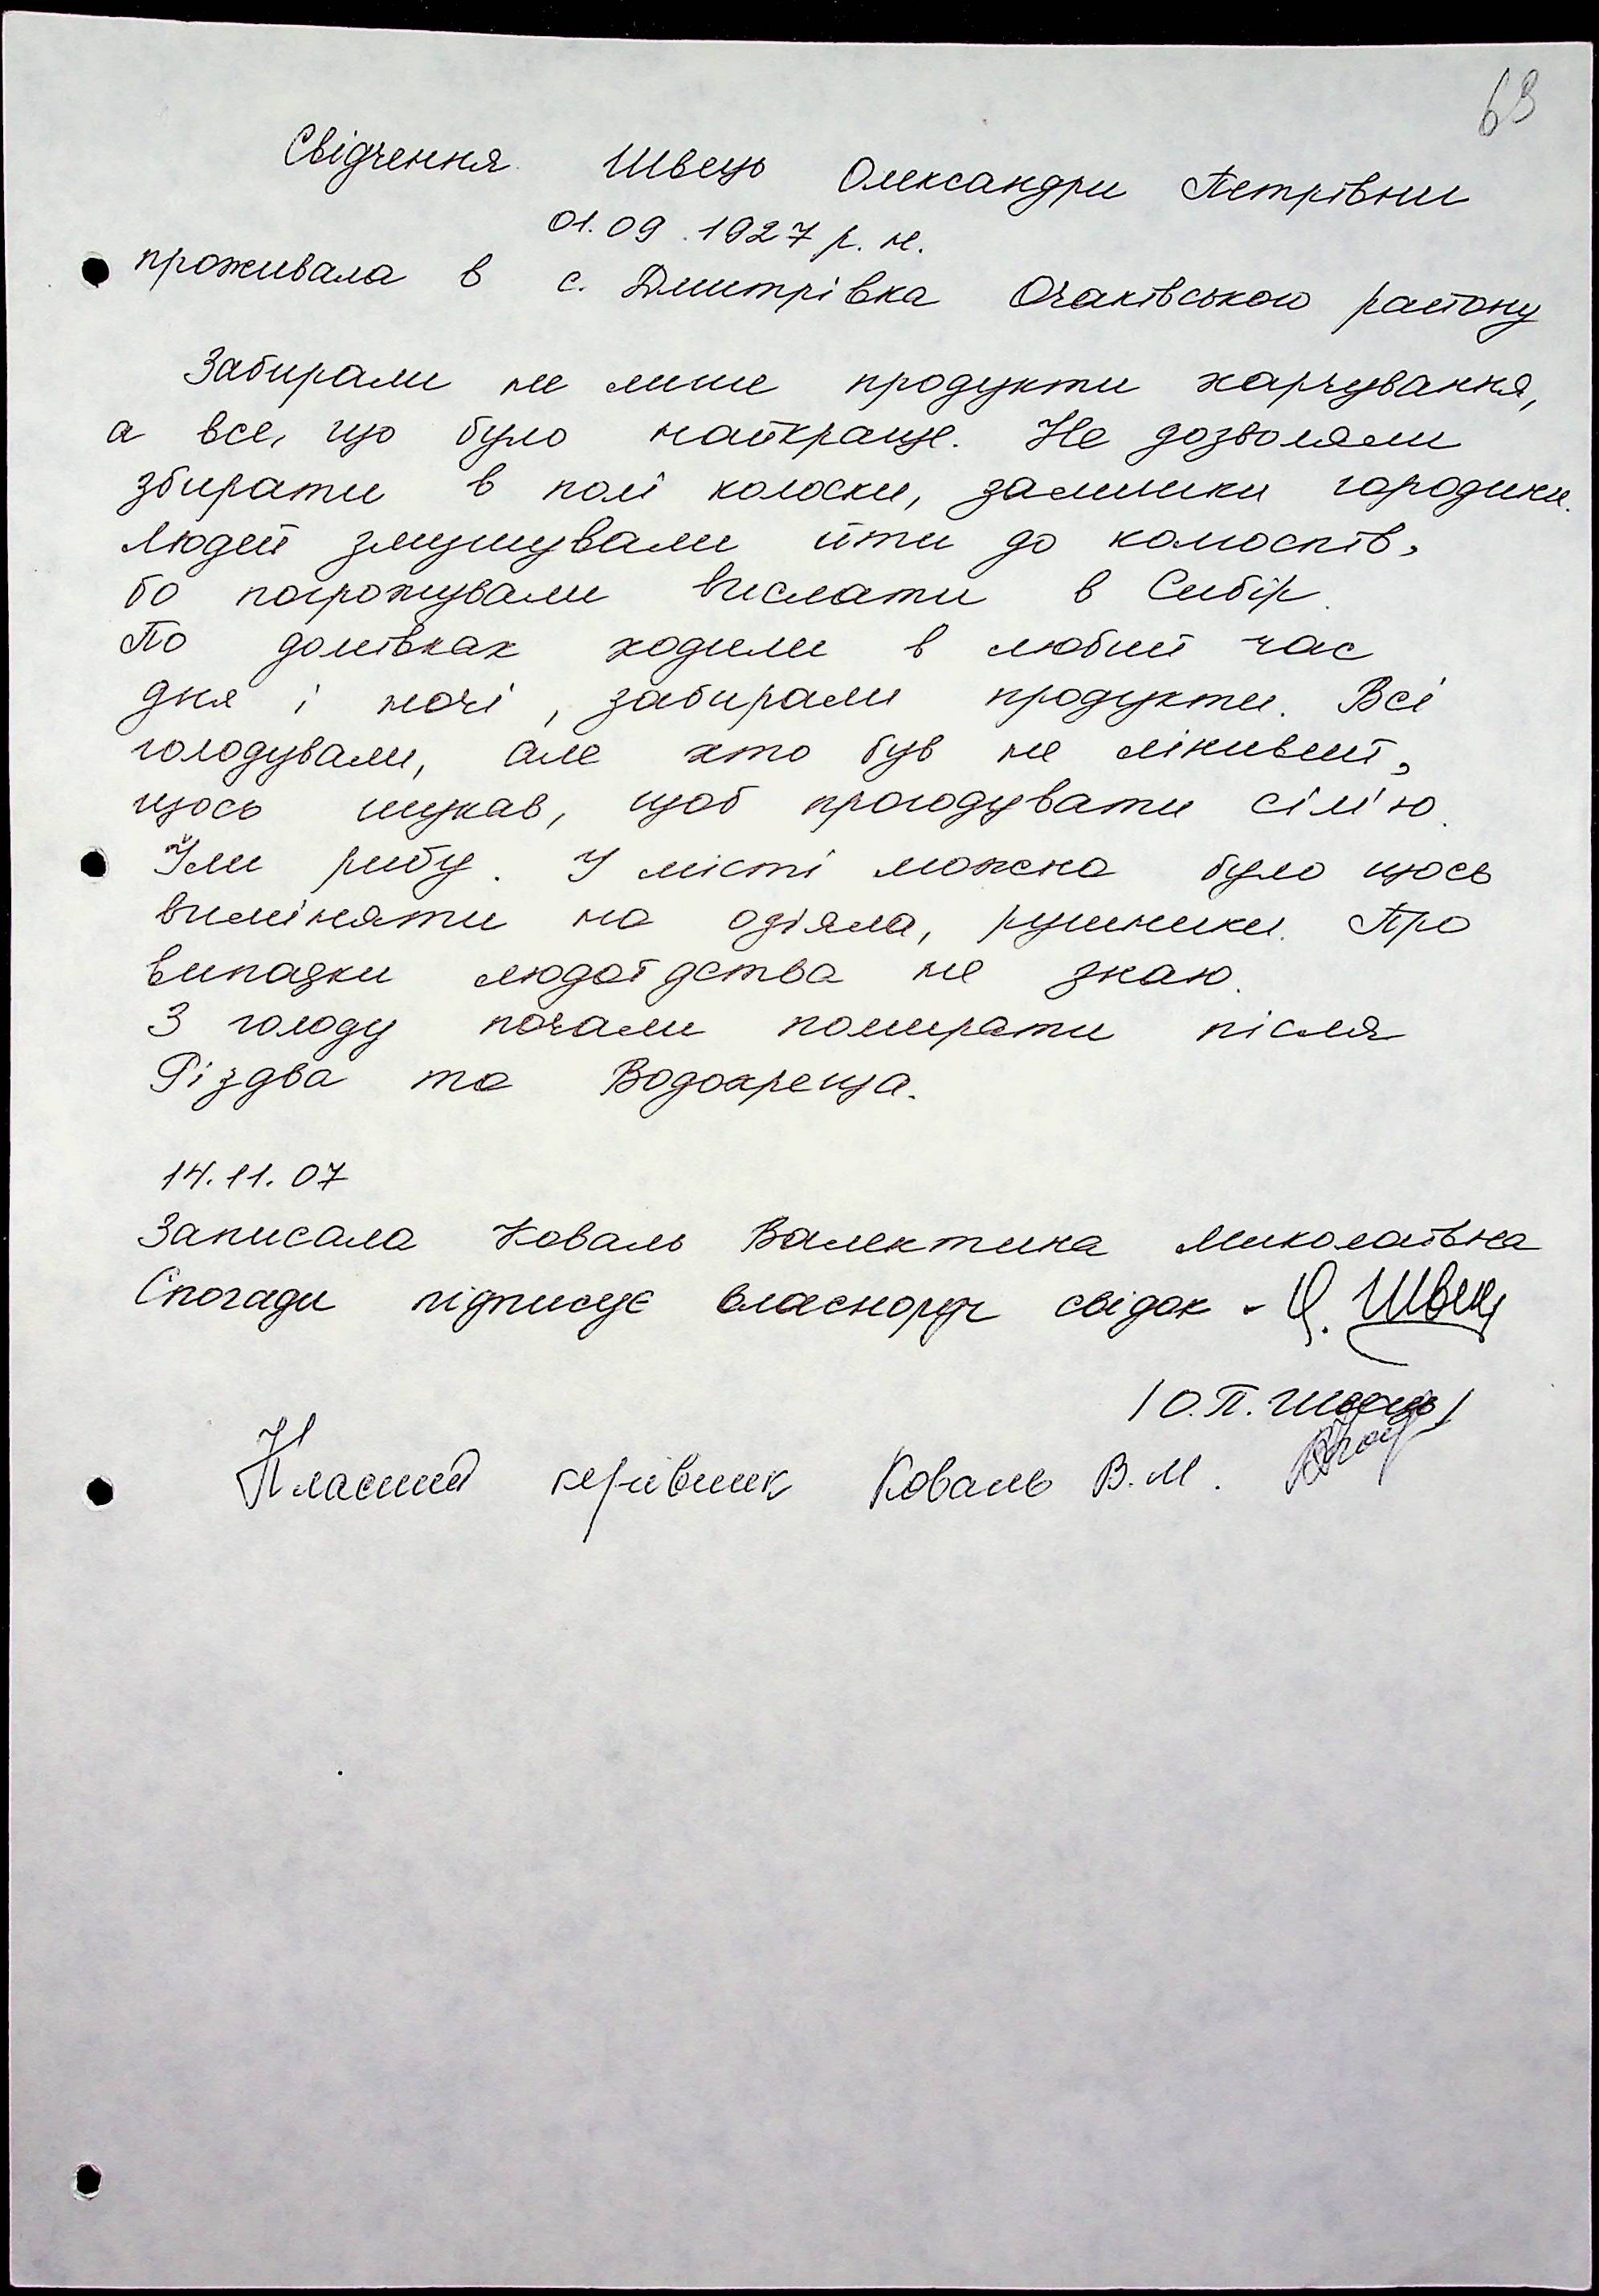 63
Свідчення Швець Олександри Петрівни
01.09.1927 р.н.
проживала в с. Дмитрівка Очаківського району
Забирали не лише продукти харчування,
а все, що було найкраще. Не дозволяли
збирати в полі колоски, залишки городини.
Людей змушували йти до колоспів,
бо погрожували вислати в Сибір.
По домівках ходили в любий час
дня і ночі, забирали продукти. Всі
голодували, але хто був не лінивий,
щось шукав, щоб прогодувати сім'ю.
Їли рибу. У місті можна було щось
виміняти на одіяла, рушники. Про
випадки людоїдства не знаю.
З голоду почали помирати після
Різдва та Водохреща.
14.11.07
Записала Коваль Валентина Миколаївна
Спогади підписує власноруч свідок - О. Швец
/О.П. Швець/
Класний керівник Коваль В.М.